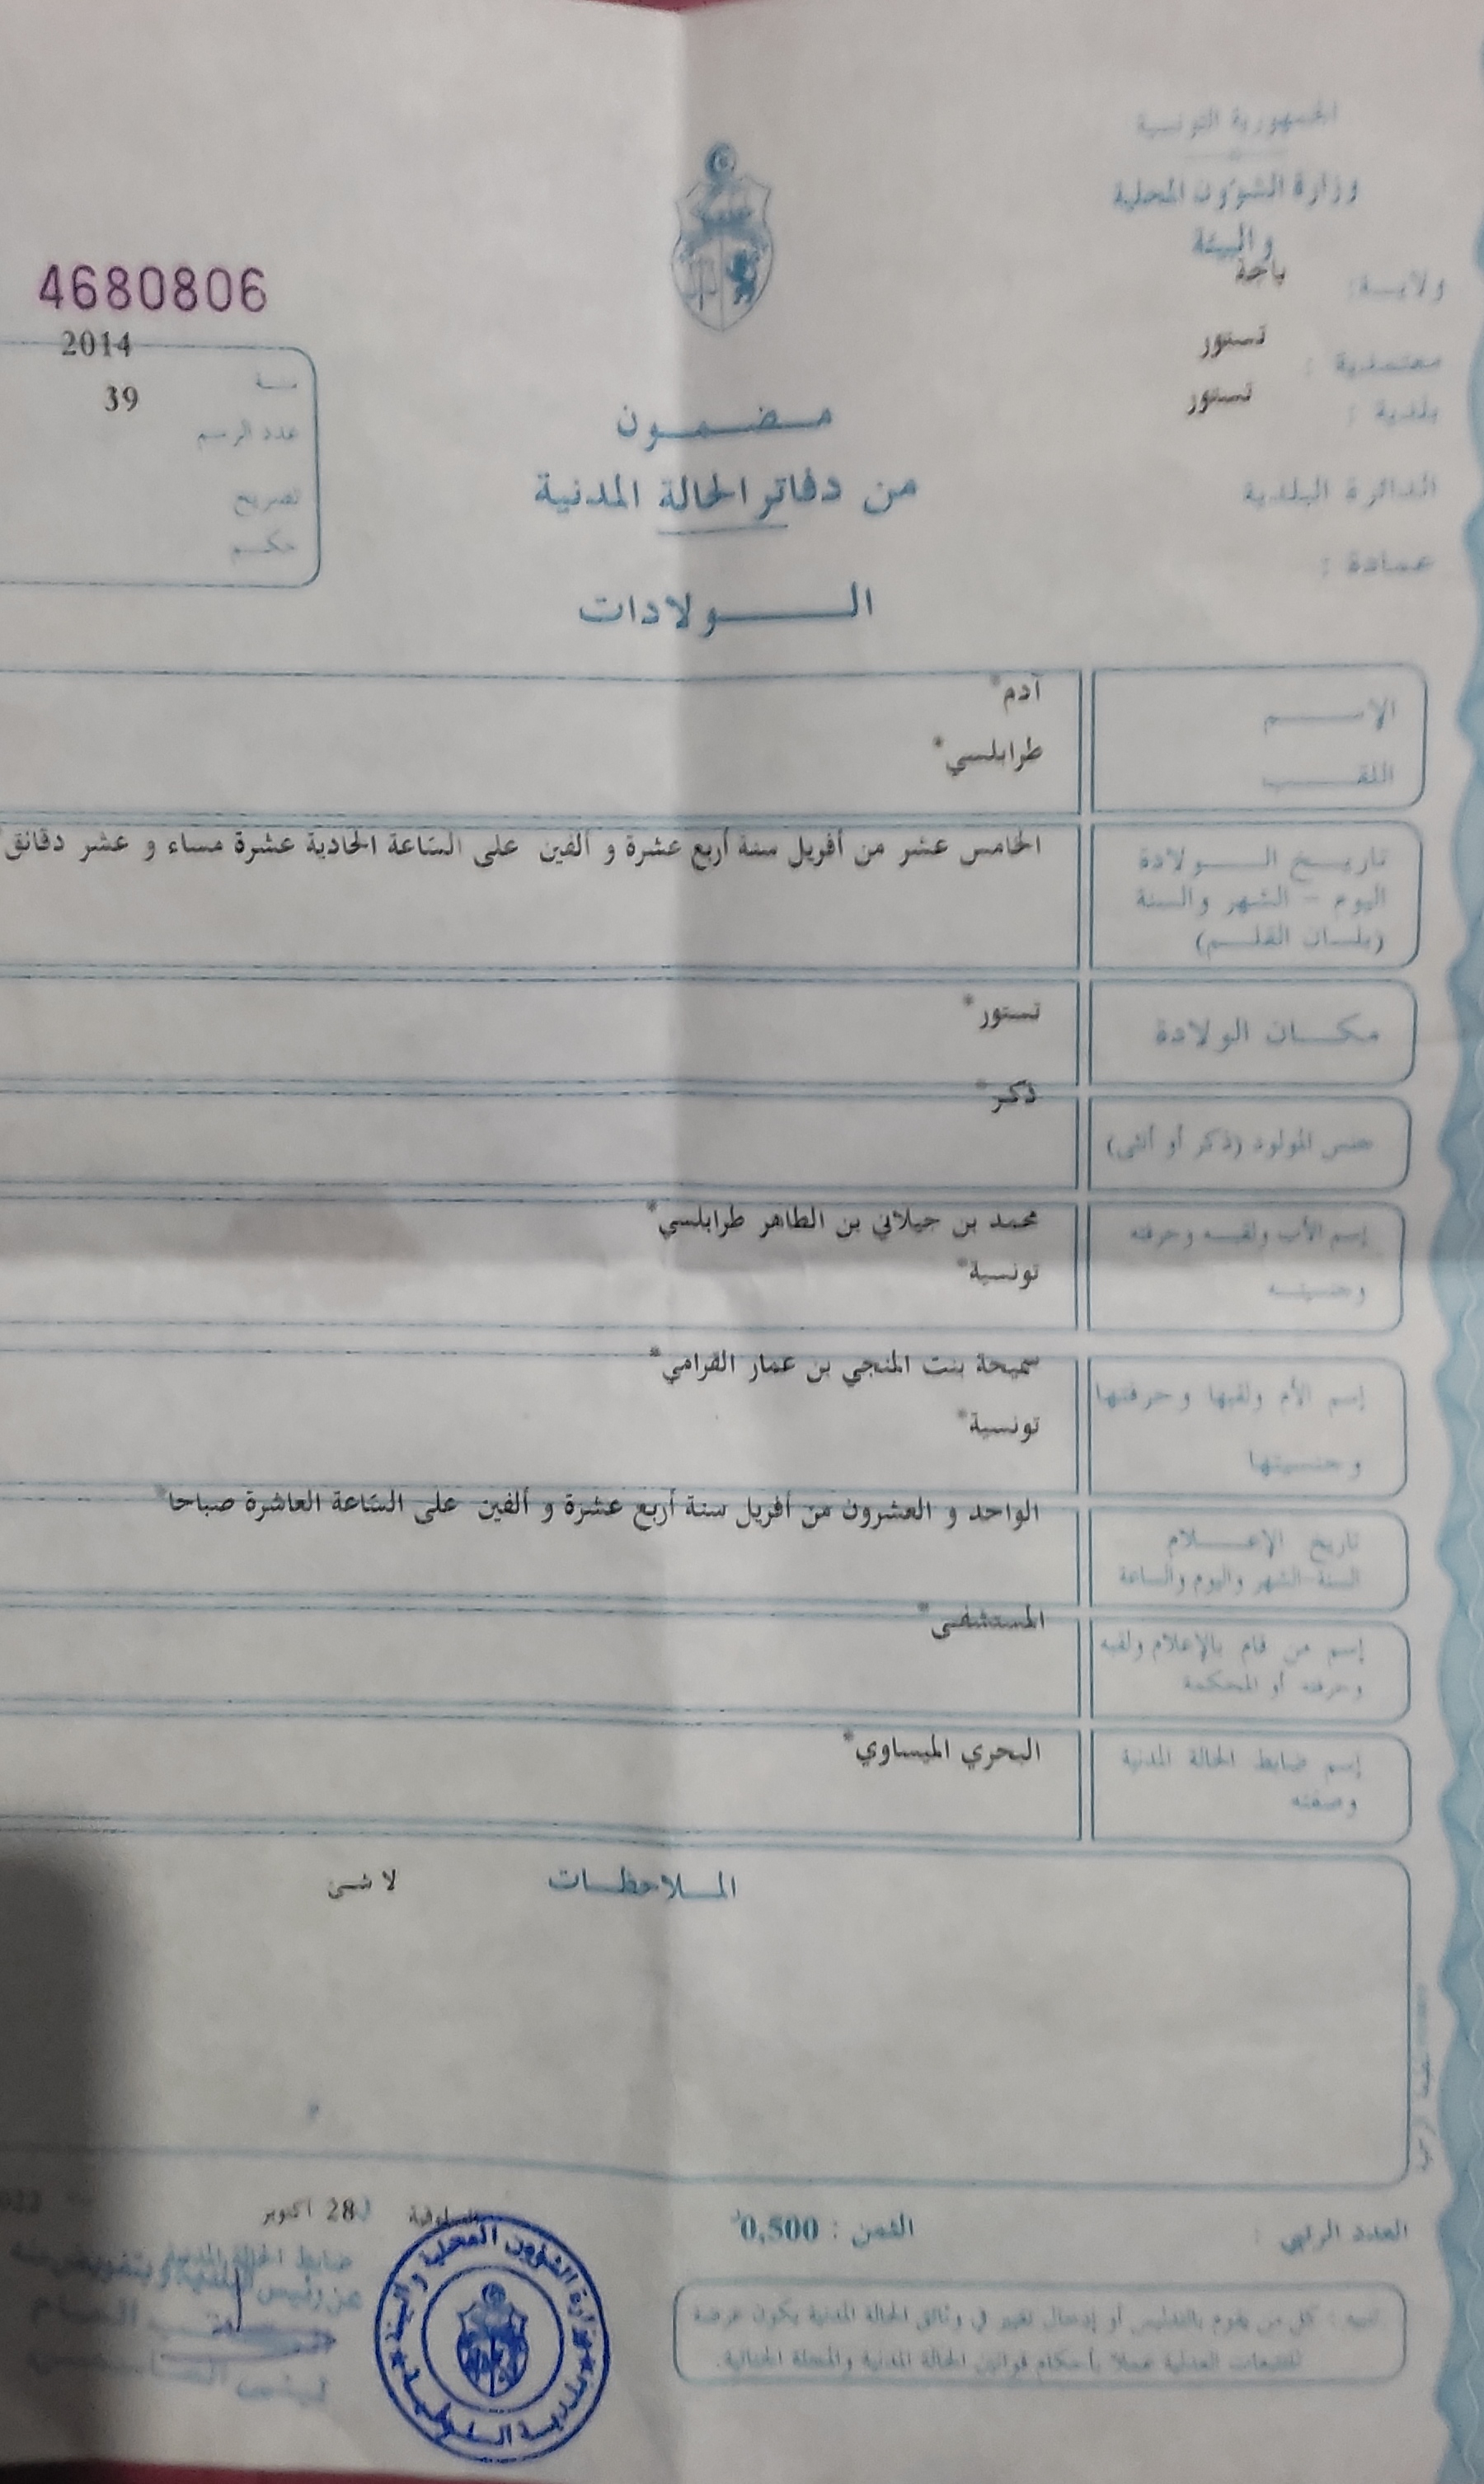 الجمهورية التونسية
وزارة الشؤون المحلية
والبيئة
ولاية: باجة
معتمدية : تستور
بلدية : تستور
الدائرة البلدية
عمادة :
4680806
2014
سنة
39
عدد الرسم
تصريح
حكم
مضمون
من دفاتر الحالة المدنية
الولادات
الاسم آدم*
اللقب طرابلسي*
تاريخ الولادة
اليوم - الشهر والسنة
(بلسان القلم)
الخامس عشر من أفريل سنة أربع عشرة و ألفين على الساعة الحادية عشرة مساء و عشر دقائق
مكان الولادة تستور*
جنس المولود (ذكر أو أنثى) ذكر*
إسم الأب ولقبه وحرفته
وجنسيته
محمد بن جيلاني بن الطاهر طرابلسي*
تونسية*
إسم الأم ولقبها وحرفتها
وجنسيتها
سميحة بنت المنجي بن عمار القرامي*
تونسية*
تاريخ الإعلام
السنة الشهر واليوم والساعة
الواحد و العشرون من أفريل سنة أربع عشرة و ألفين على الساعة العاشرة صباحا*
إسم من قام بالإعلام ولقبه
وحرفته أو المحكمة
المستشفى*
إسم ضابط الحالة المدنية
وصفته
البحري الميساوي*
الملاحظات لا شئ
العدد الرتبي :
الثمن : 0,500
السلوقية 28 أكتوبر
ضابط الحالة المدنية
عن رئيس البلدية وبتفويض منه
تنبيه : كل من يقوم بالتدليس أو إدخال تغيير في وثائق الحالة المدنية يكون عرضة
للتتبعات العدلية عملا بأحكام قوانين الحالة المدنية والمجلة الجنائية.
وزارة الشؤون المحلية والبيئة
بلدية السلوقية